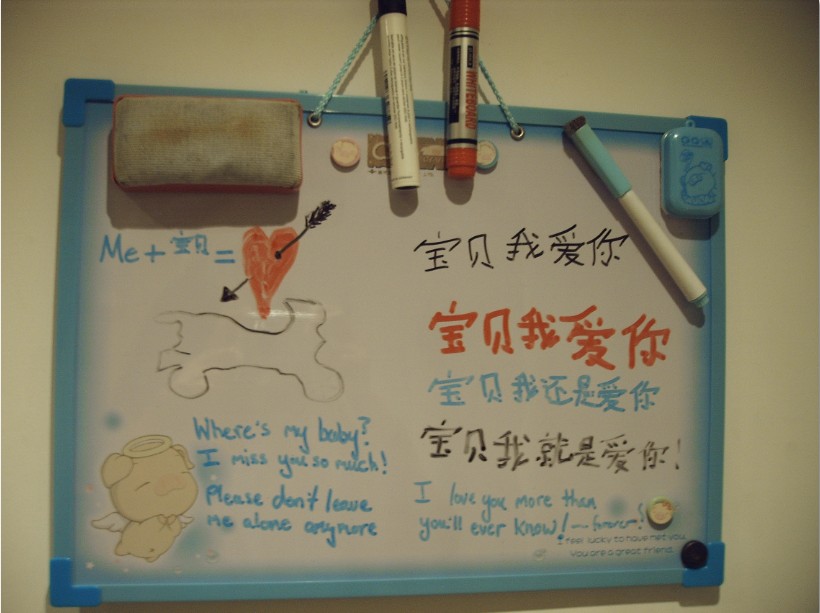 WHITEBOARD
Me + 宝贝 =
宝贝我爱你
宝贝我爱你
宝贝我还是爱你
宝贝我就是爱你!
Where's my baby?
I miss you so much!
Please don't leave
me alone anymore
I love you more than
you'll ever know! — forever!
I feel lucky to have met you.
You are a great friend.